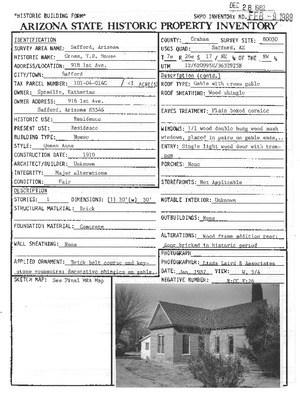 DEC 28 1987
"HISTORIC BUILDING FORM"
SHPO INVENTORY NO.
FEB - 9 1988
ARIZONA STATE HISTORIC PROPERTY INVENTORY
IDENTIFICATION
SURVEY AREA NAME: Safford, Arizona
HISTORIC NAME: House
ADDRESS/LOCATION: 918 1st Ave.
CITY/TOWN: Safford
TAX PARCEL NUMBER: 101-04-014C / <1 ACRES
OWNER: Katherine
OWNER ADDRESS: 916 1st Ave.
Safford, Arizona 85546
HISTORIC USE: Residence
PRESENT USE: Residence
BUILDING TYPE: House
STYLE: Queen Anne
CONSTRUCTION DATE: 1910
ARCHITECT/BUILDER: Unknown
INTEGRITY: Major alterations
CONDITION: Fair
DESCRIPTION
STORIES: 1 DIMENSIONS: (l) 30'(w) 30'
STRUCTURAL MATERIAL: Brick
FOUNDATION MATERIAL: Concrete
WALL SHEATHING: None
APPLIED ORNAMENT: Brick belt course and key-
stone voussoirs; decorative shingles on gable.
SKETCH MAP: See Final HRA Map
COUNTY: Graham SURVEY SITE: 80030
USGS QUAD: Safford, AZ
T 7s R 26e S 17 / NW ¼ OF THE NW ¼
UTM
Description (contd.)
ROOF TYPE: Gable with cross gable
ROOF SHEATHING: Wood shingle
EAVES TREATMENT: Plain boxed cornice
WINDOWS: 1/1 wood double hung wood sash
windows, placed in pairs on gable ends.
ENTRY: Single light wood door with tran-
som
PORCHES: None
STOREFRONTS: Not Applicable
NOTABLE INTERIOR: Unknown
OUTBUILDINGS: None
ALTERATIONS: Wood frame addition rear,
door bricked in historic period
PHOTOGRAPH
PHOTOGRAPHER: Linda Laird & Associates
DATE: Jan. 1987 VIEW: W, 3/4
NEGATIVE NUMBER: